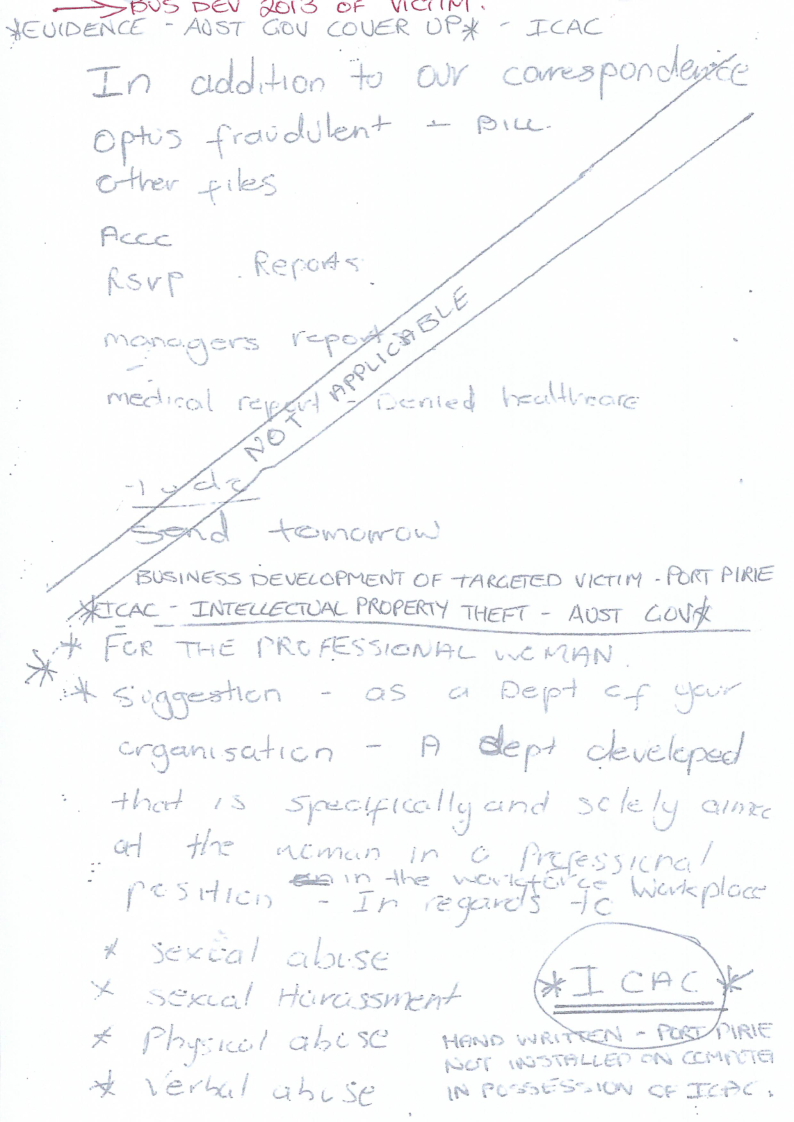 → BUS DEV 2013 OF VICTIM.
*EVIDENCE - AUST GOV COVER UP* - ICAC
In addition to our correspondence
Optus fraudulent - BILL.
Other files
Accc
RSVP Reports.
managers report
medical report - Denied healthcare
NOT APPLICABLE
Send tomorrow
BUSINESS DEVELOPMENT OF TARGETED VICTIM - PORT PIRIE
*ICAC - INTELLECTUAL PROPERTY THEFT - AUST GOV*
* FOR THE PROFESSIONAL WOMAN.
* Suggestion - as a Dept of your
organisation - A dept developed
that is specifically and solely aimed
at the woman in a Professional
in the workforce workplace
position - In regards to
* sexual abuse
* sexual Harassment
* Physical abuse
* Verbal abuse
*ICAC*
HAND WRITTEN - PORT PIRIE
NOT INSTALLED ON COMPUTER
IN POSSESSION OF ICAC.